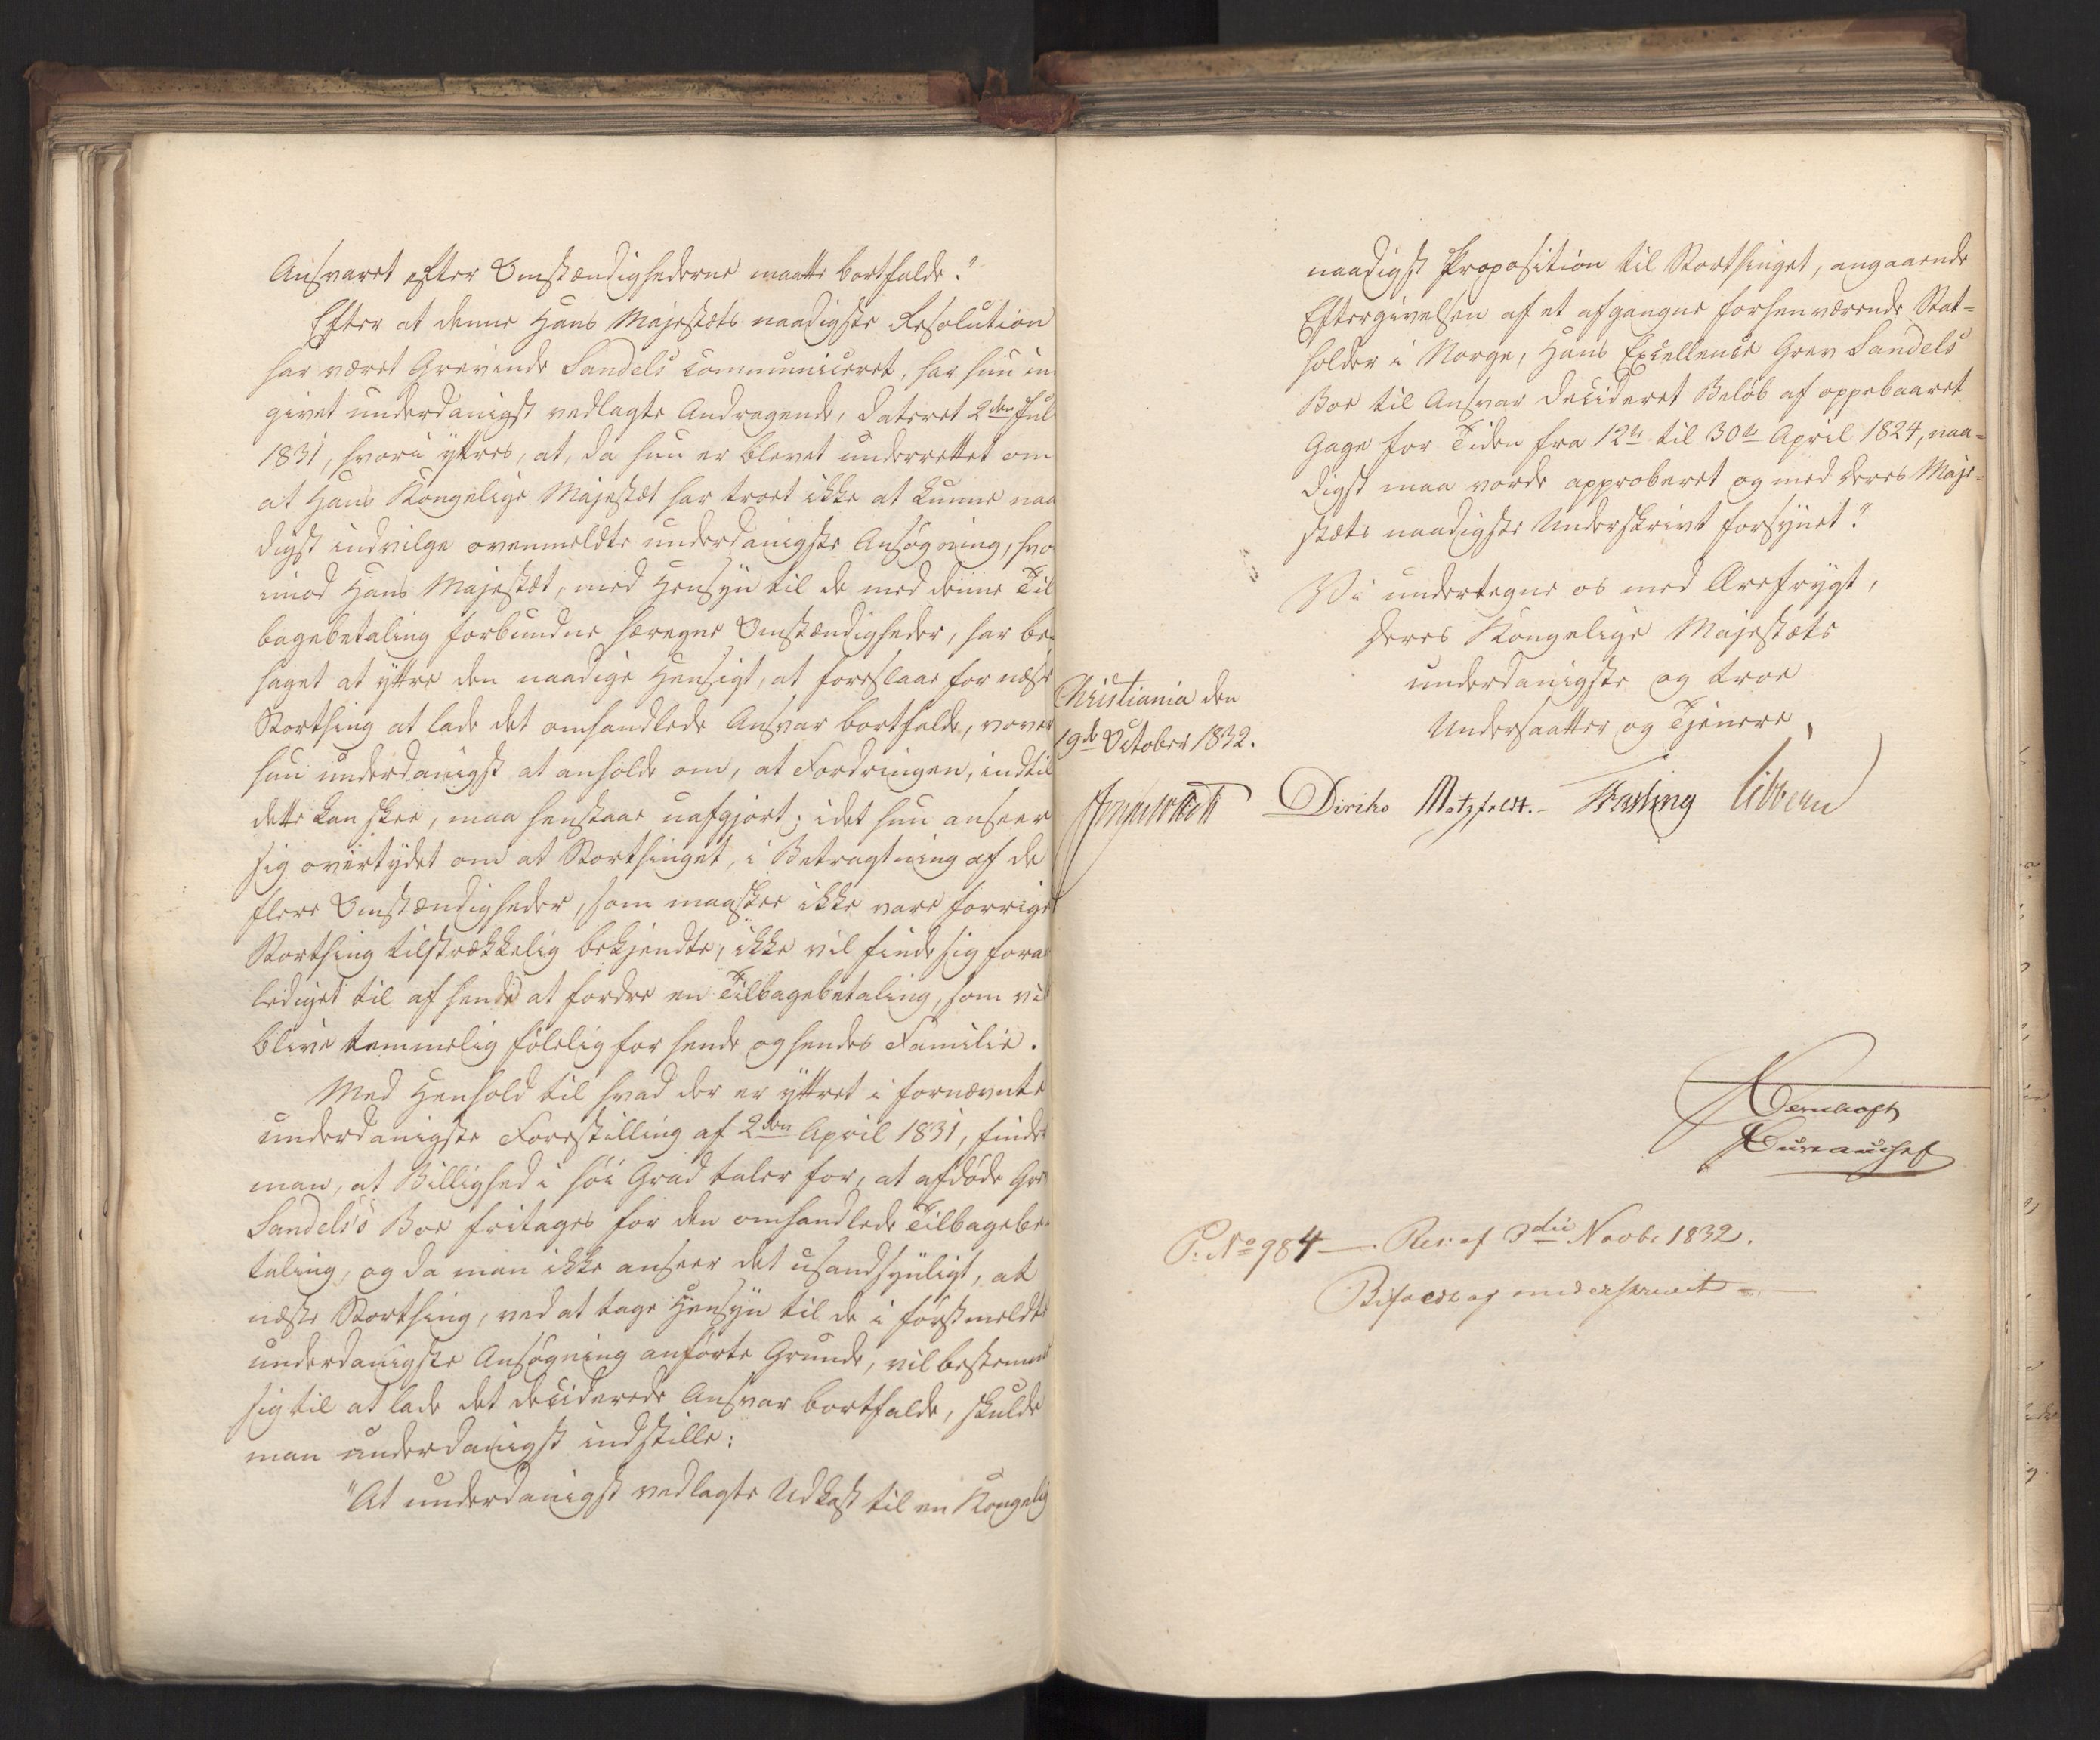 Ansvaret efter Omstændighederne maatte bortfalde."
Efter at denne Hans Majestæts naadigste Resolution
har været Grevinde Sandels communiceret, har hun in
givet underdanigst vedlagte Andragende, dateret 2den Jul
1831, hvori yttres, at, da hun er blevet underrettet om
at Hans Kongelige Majestæt har troet ikke at kunne naa
digst indvilge ovenmeldte underdanigste Ansøgning, hvo
imod Hans Majestæt, med Hensyn til de med denne Til
bagebetaling forbundne særegne Omstændigheder, har be
haget at yttre den naadige Hensigt, at foreslaae for næste
Storthing at lade det omhandlede Ansvar bortfalde, vover
hun underdanigst at anholde om, at Fordringen, indtil
dette kan skee, maa henstaae uafgjort; idet hun anseer
sig overtydet om at Storthinget, i Betragtning af de
flere Omstændigheder, som maaskee ikke vare forrige
Storthing tilstrækkelig bekjendte, ikke vil finde sig foran
lediget til af hende at fordre en Tilbagebetaling, som vil
blive temmelig følelig for hende og hendes Familie.
Med Henhold til hvad der er yttret i fornævnte
underdanigste Forestilling af 2den April 1831, finder
man, at Billighed i höi Grad taler for, at afdøde Gre
Sandels's Boe fritages for den omhandlede Tilbagebe-
taling, og da man ikke anseer det usandsynligt, at
næste Storthing, ved at tage Hensyn til de i førstmeldte
underdanigste Ansøgning anførte Grunde, vil bestemme
sig til at lade det deciderede Ansvar bortfalde, skulde
man underdanigst indstille:
"At underdanigst vedlagte Udkast til en Kongelig
naadigst Proposition til Storthinget, angaaende
Eftergivelsen af et afgangne forhenværende Stat=
holder i Norge, Hans Excellence Grev Sandels
Boe til Ansvar decideret Beløb af oppebaaret
Gage for Tiden fra 12te til 30te April 1824, naa=
digst maa vorde approberet og med Deres Maje=
stæts naadigste Underskrivt forsynet."
Vi undertegne os med Ærefrygt,
Deres Kongelige Majestæts
underdanigste og troe
Undersaatter og Tjenere,
Christiania den
19de October 1832.
Diriks Motzfeldt. Fasting Vibe
Bureauchef
P. No 984 — Res: af 3die Novbr 1832.
Bifaldt og underskrevet